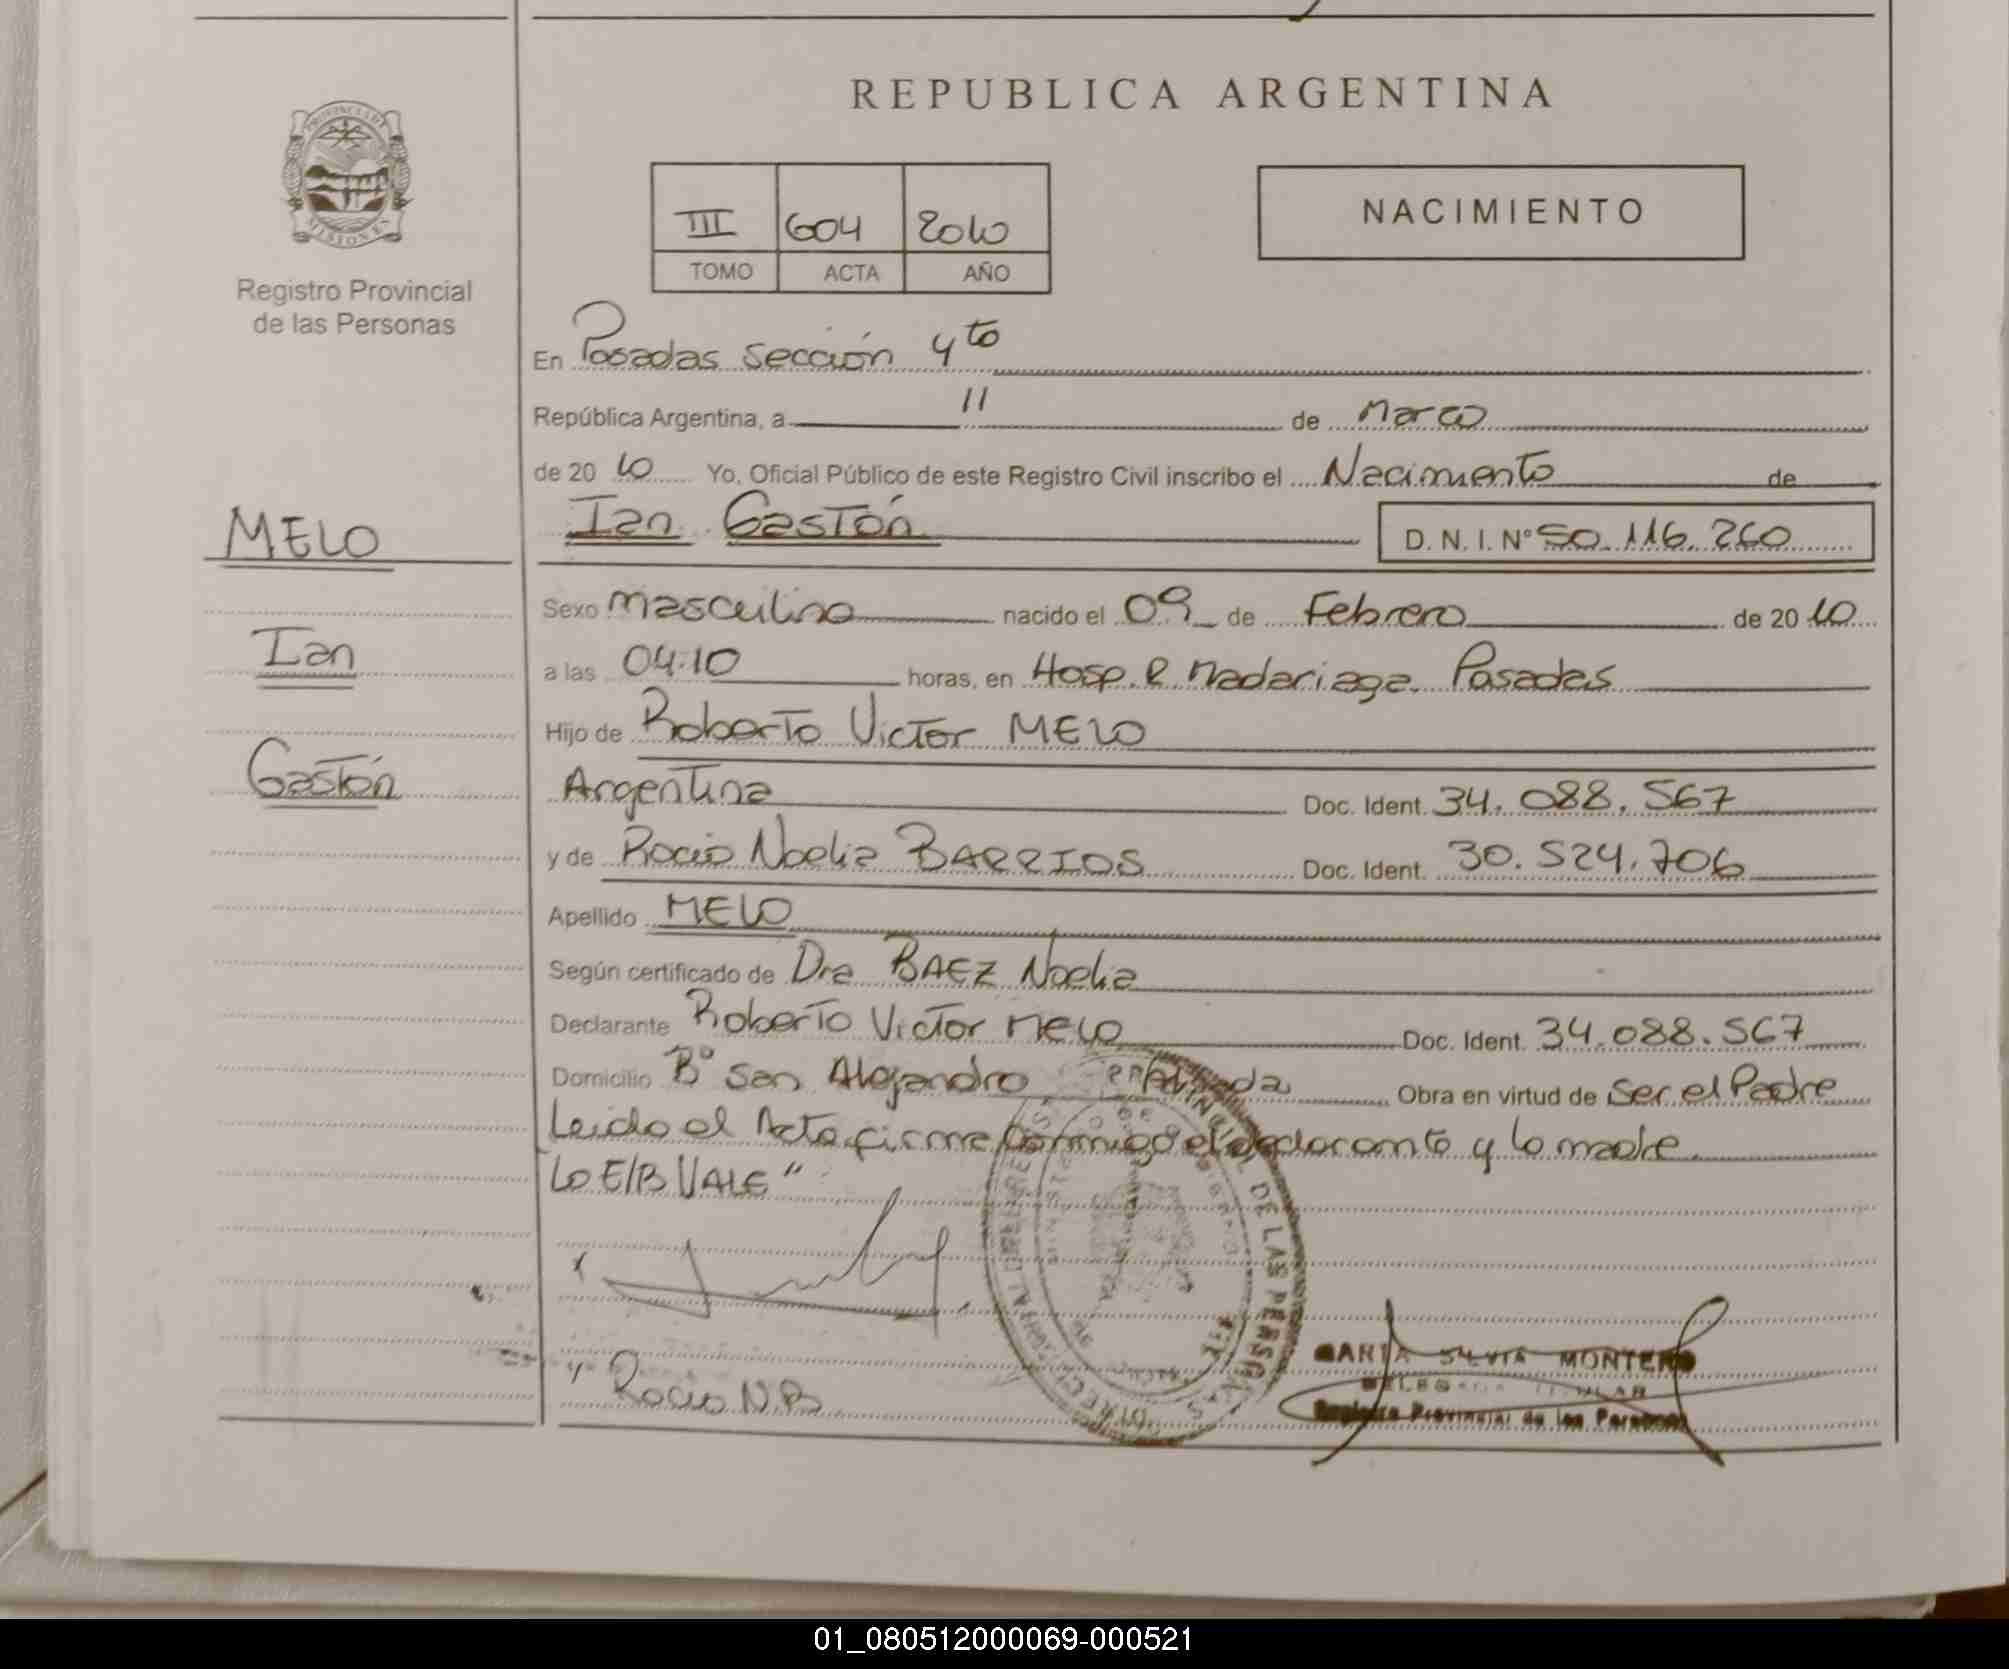 REPUBLICA ARGENTINA
PROVINCIA DE
MISIONES
Registro Provincial
de las Personas
III 604 2010
TOMO ACTA AÑO
NACIMIENTO
En Posadas Sección 4to
República Argentina, a 11 de Marzo
de 20 10 Yo, Oficial Público de este Registro Civil inscribo el Nacimiento de
Ian Gastón D. N. I. N° 50.116.260
MELO
Ian
Gastón
Sexo Masculino nacido el 09 de Febrero de 20 10
a las 04:10 horas, en Hosp. R. Madariaga. Posadas
Hijo de Roberto Victor MELO
Argentina Doc. Ident. 34.088.567
y de Rocio Noelia BARRIOS Doc. Ident. 30.524.706
Apellido MELO
Según certificado de Dra BAEZ Noelia
Declarante Roberto Victor Melo Doc. Ident. 34.088.567
Domicilio B° San Alejandro Obra en virtud de Ser el Padre
Leido el Acta firma conmigo el declarante y la madre
Lo E/B VALE"
DE LAS PERSONAS
Rocio N.B
MARIA SILVIA MONTERO
DELEGADA TITULAR
Registro Provincial de las Personas
01_080512000069-000521